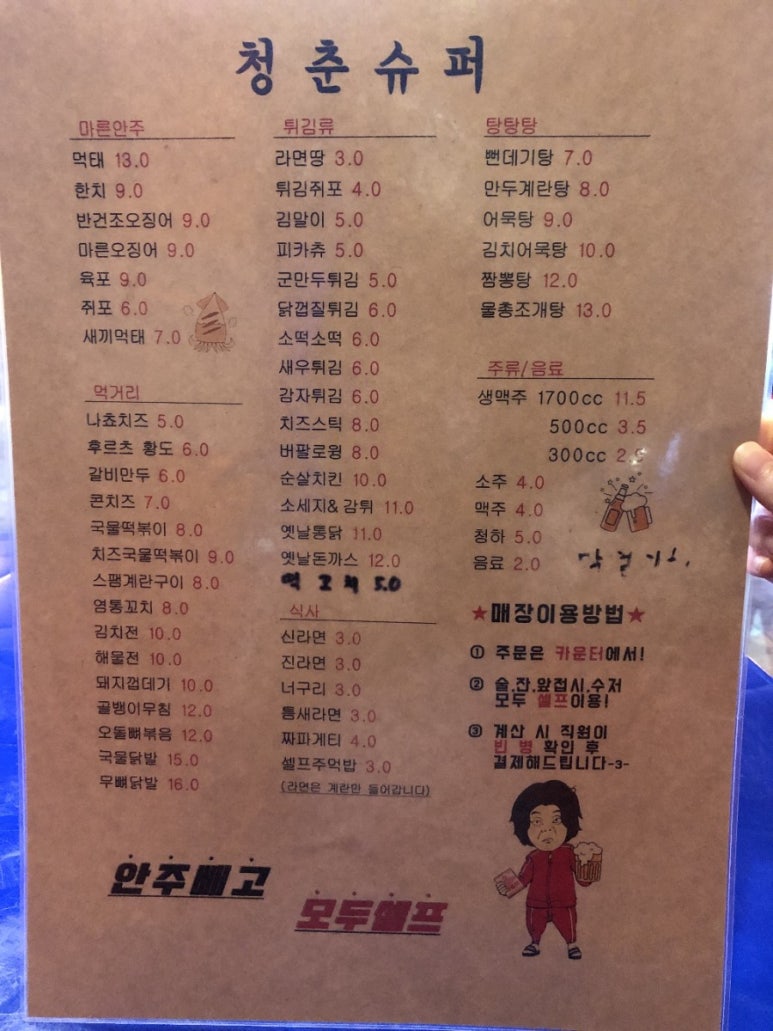 청춘슈퍼
마른안주
먹태 13.0
한치 9.0
반건조오징어 9.0
마른오징어 9.0
육포 9.0
쥐포 6.0
새끼먹태 7.0
먹거리
나쵸치즈 5.0
후르츠 황도 6.0
갈비만두 6.0
콘치즈 7.0
국물떡볶이 8.0
치즈국물떡볶이 9.0
스팸계란구이 8.0
염통꼬치 8.0
김치전 10.0
해물전 10.0
돼지껍데기 10.0
골뱅이무침 12.0
오돌뼈볶음 12.0
국물닭발 15.0
무뼈닭발 16.0
튀김류
라면땅 3.0
튀김쥐포 4.0
김말이 5.0
피카츄 5.0
군만두튀김 5.0
닭껍질튀김 6.0
소떡소떡 6.0
새우튀김 6.0
감자튀김 6.0
치즈스틱 8.0
버팔로윙 8.0
순살치킨 10.0
소세지& 감튀 11.0
옛날통닭 11.0
옛날돈까스 12.0
떡꼬치 5.0
식사
신라면 3.0
진라면 3.0
너구리 3.0
틈새라면 3.0
짜파게티 4.0
셀프주먹밥 3.0
(라면은 계란만 들어갑니다)
탕탕탕
뻔데기탕 7.0
만두계란탕 8.0
어묵탕 9.0
김치어묵탕 10.0
짬뽕탕 12.0
물총조개탕 13.0
주류/음료
생맥주 1700cc 11.5
500cc 3.5
300cc
소주 4.0
맥주 4.0
청하 5.0
음료 2.0
막걸리
★매장이용방법★
① 주문은 카운터에서!
② 술,잔,앞접시,수저
모두 셀프이용!
③ 계산 시 직원이
빈 병 확인 후
결제해드립니다-3-
안주빼고
모두셀프